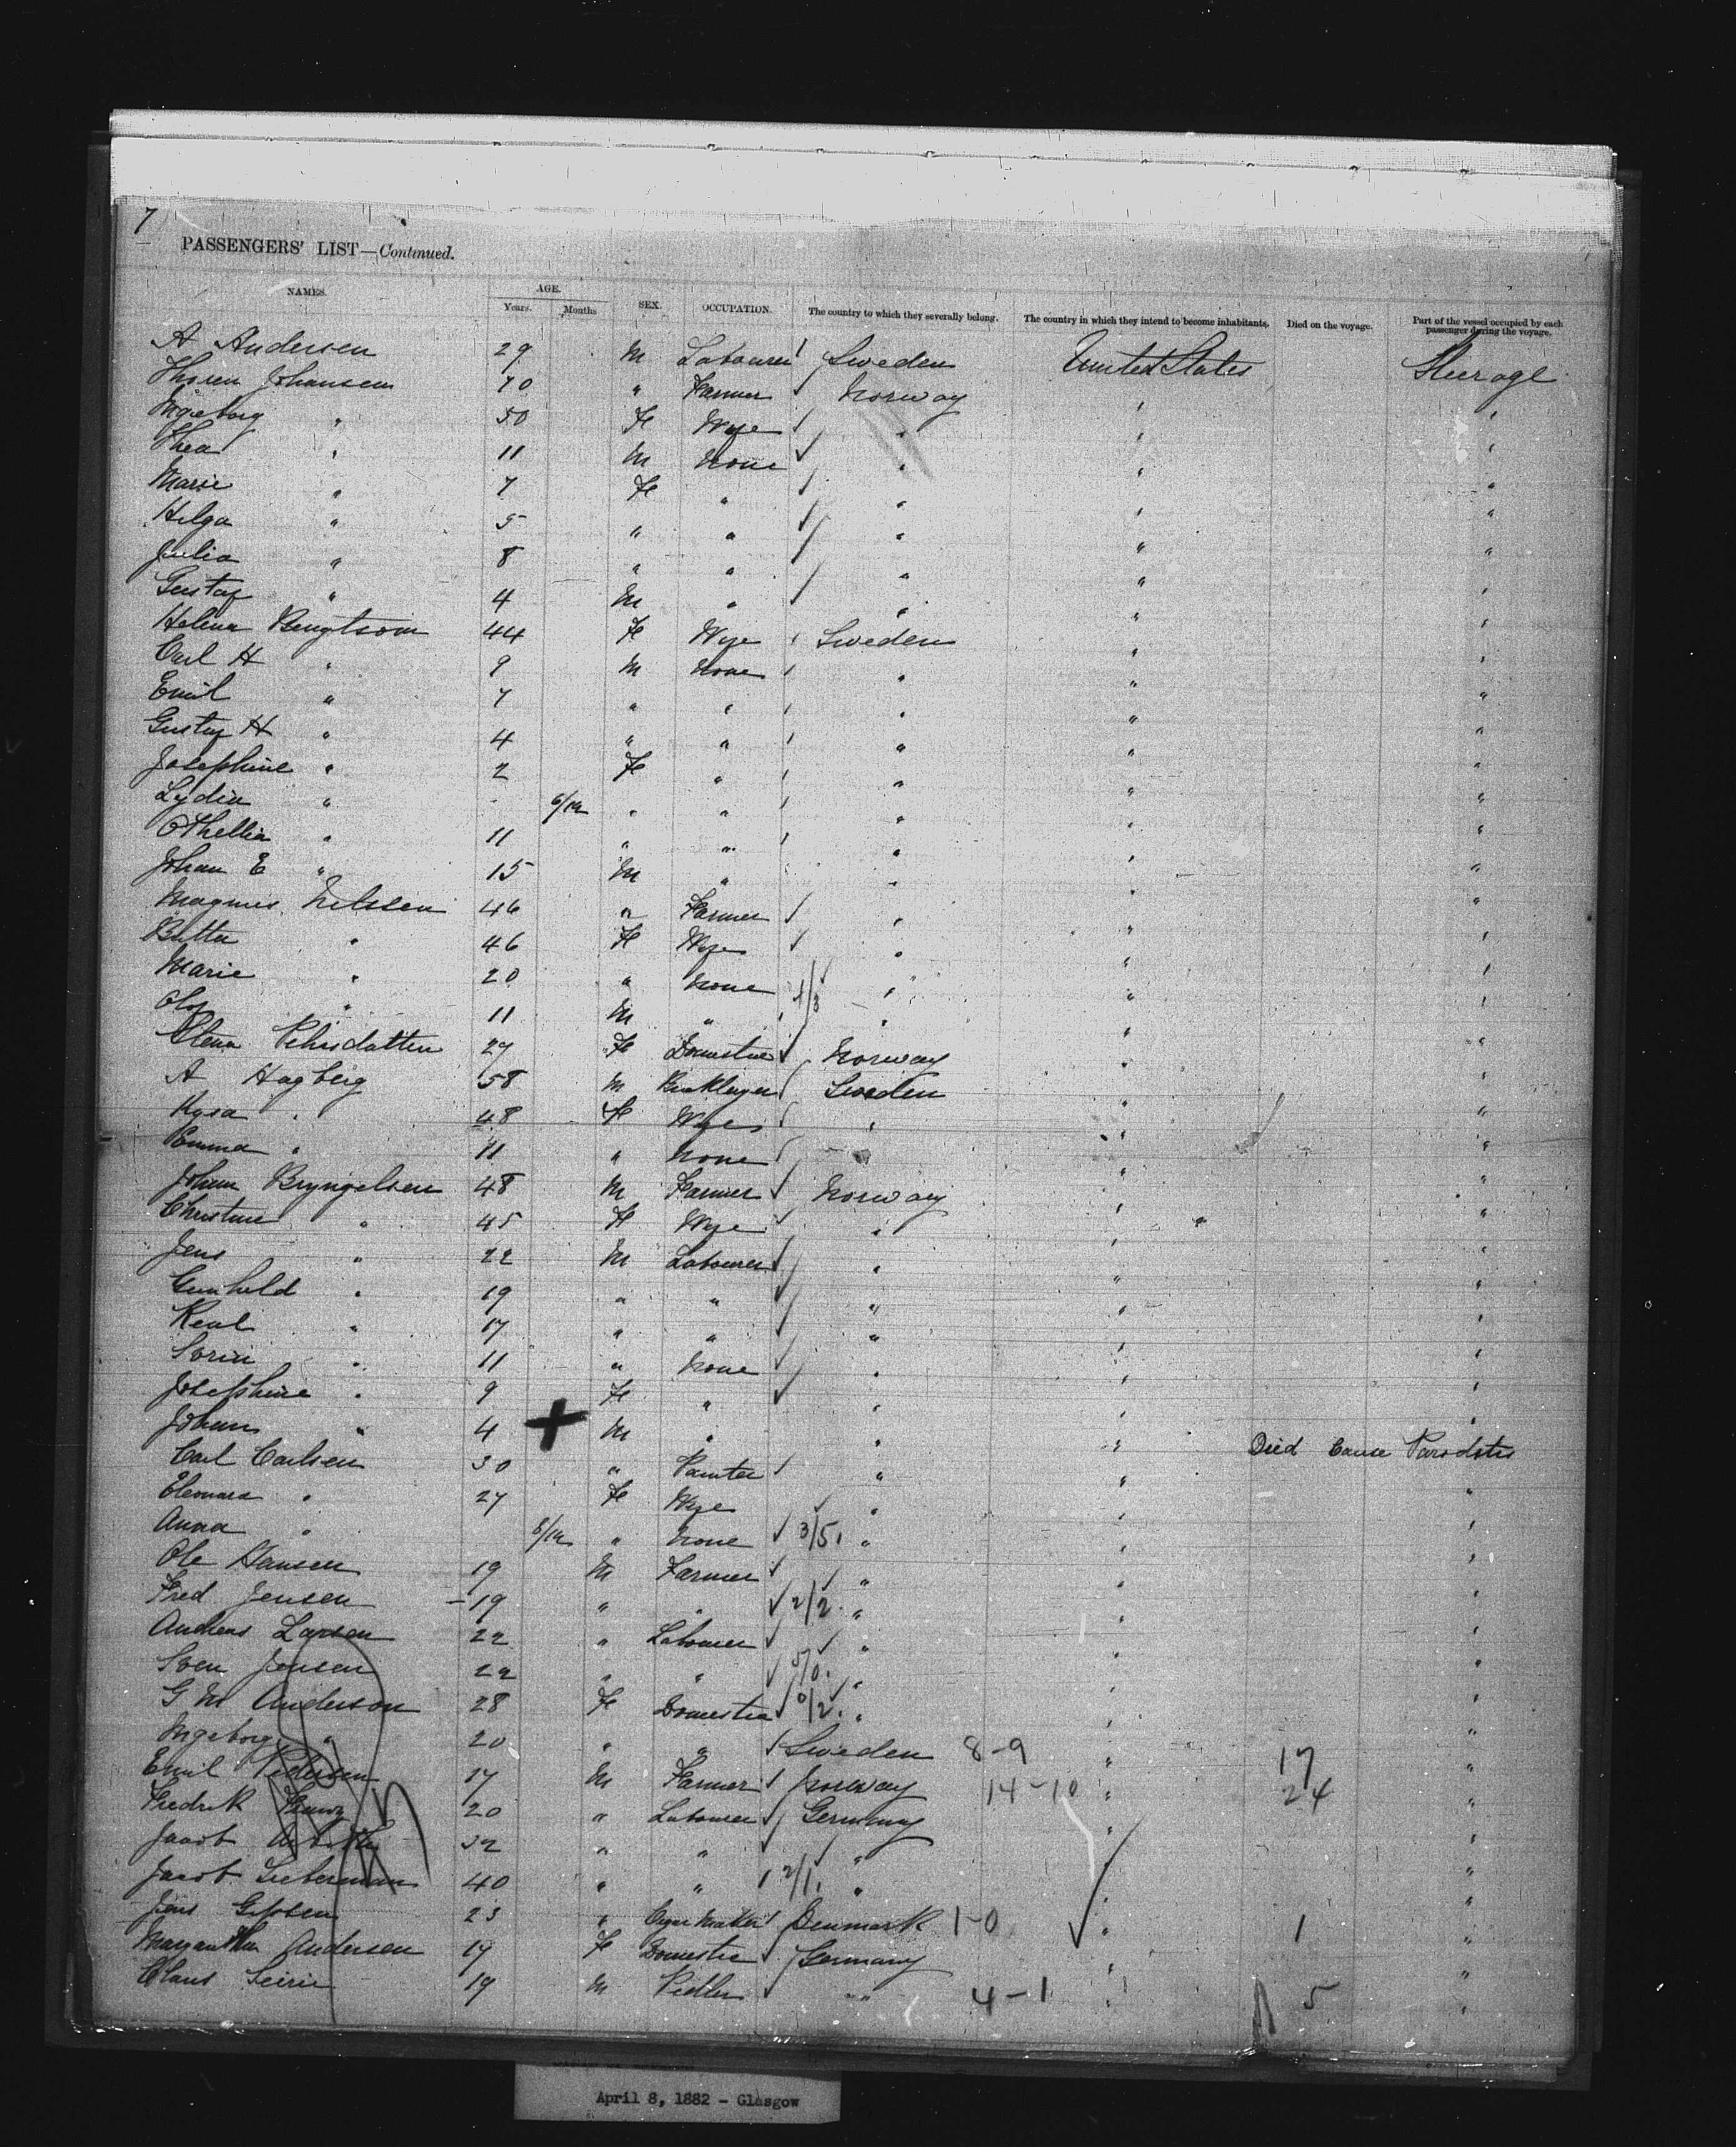 7
PASSENGERS' LIST—Continued.
NAMES. AGE. Years. Months SEX. OCCUPATION. The country to which they severally belong. The country in which they intend to become inhabitants. Died on the voyage. Part of the vessel occupied by each passenger during the voyage.
A Andersen 29 M Labourer Sweden United States Steerage
Johansen 40 " Farmer Norway " "
Ingeborg " 50 Fe Wife " " "
Thea " 11 M None " " "
Marie " 7 Fe " " " "
Helga " 5 " " " " "
Julia " 8 " " " " "
Gustaf " 4 M " " " "
Helena Bengtsom 44 Fe Wife Sweden " "
Carl H " 9 M None " " "
Emil " 7 " " " " "
Gustaf H " 4 " " " " "
Josephine " 2 Fe " " " "
Lydia " 6/12 " " " " "
Othellia " 11 " " " " "
Johan E " 15 M " " " "
Magnus Nelssen 46 " Farmer " " "
" 46 Fe Wife " " "
Marie " 20 " None 1/3 " " "
Olof " 11 M " " " "
Pehrsdatter 27 Fe Domestic Norway " "
A Hagberg 58 M Sweden " "
" 48 Fe Wife " " "
Emma " 11 " None " " "
Johan Bryngelsen 48 M Farmer Norway " "
Christine " 45 Fe Wife " " "
Jens " 22 M Labourer " " "
Gunhild " 19 " " " " "
" 17 " " " " "
Sorin " 11 " None " " "
Josephine " 9 Fe " " " "
Johan " 4 + M " " " Died Cause
Carl Carlsen 30 " Painter " " "
Eleonara " 27 Fe Wife " " "
Anna " 8/12 " None 3/5 " " "
Ole Hansen 19 M Farmer " " "
Fred Jensen 19 " " 2/2 " " "
Andreas Larsen 22 " Labourer " " "
Sven Jensen 22 " " 5/0 " " "
G M Anderson 28 Fe Domestic 0/2 " " "
Ingeborg " 20 " " Sweden 8-9 " 17 "
Emil Pedersen 17 M Farmer Norway 14-10 " 24 "
Fredrik 20 " Labourer Germany " "
Jacob 32 " " " " "
Jacob Lieberman 40 " " 2/1 " " "
Jens 23 " Cigar Maker Denmark 1-0 " 1 "
Andersen 19 Fe Domestic Germany " "
Claus 19 M Pedler " " 4-1 " 5 "
April 8, 1882 - Glasgow